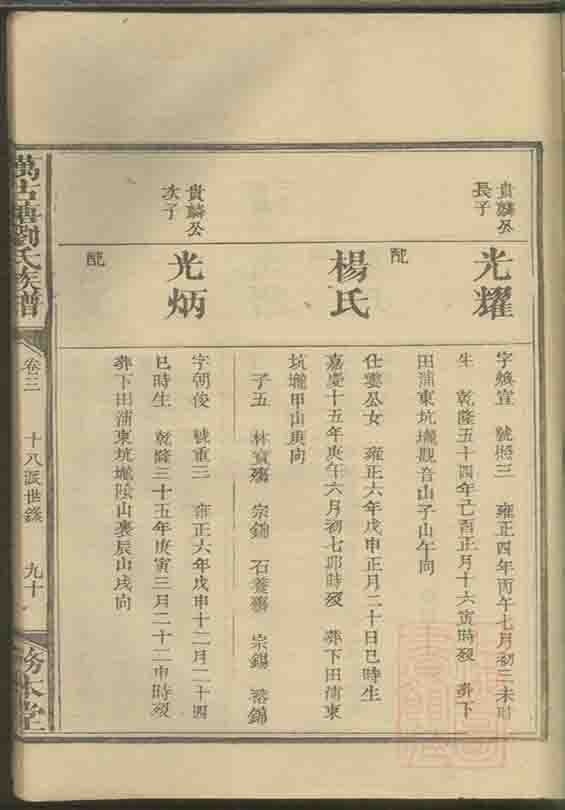 貴麟公
長子
光耀
字煥宣 號照三 雍正四年丙午七月初三未時
生 乾隆五十四年己酉正月十六寅時歿 葬下
田蒲東坑壠觀音山子山午向
配
楊氏
仕雲公女 雍正六年戊申正月二十日巳時生
嘉慶十五年庚午六月初七卯時歿 葬下田蒲東
坑壠甲山庚向
子五 林寶殤 宗錦 石養殤 宗錫 容錦
貴麟公
次子
光炳
字朝俊 號重三 雍正六年戊申十二月二十四
巳時生 乾隆三十五年庚寅三月二十二申時歿
葬下田蒲東坑壠陰山裏辰山戌向
配
萬古塘劉氏族譜
卷三
十八派世錄
九十
務本堂